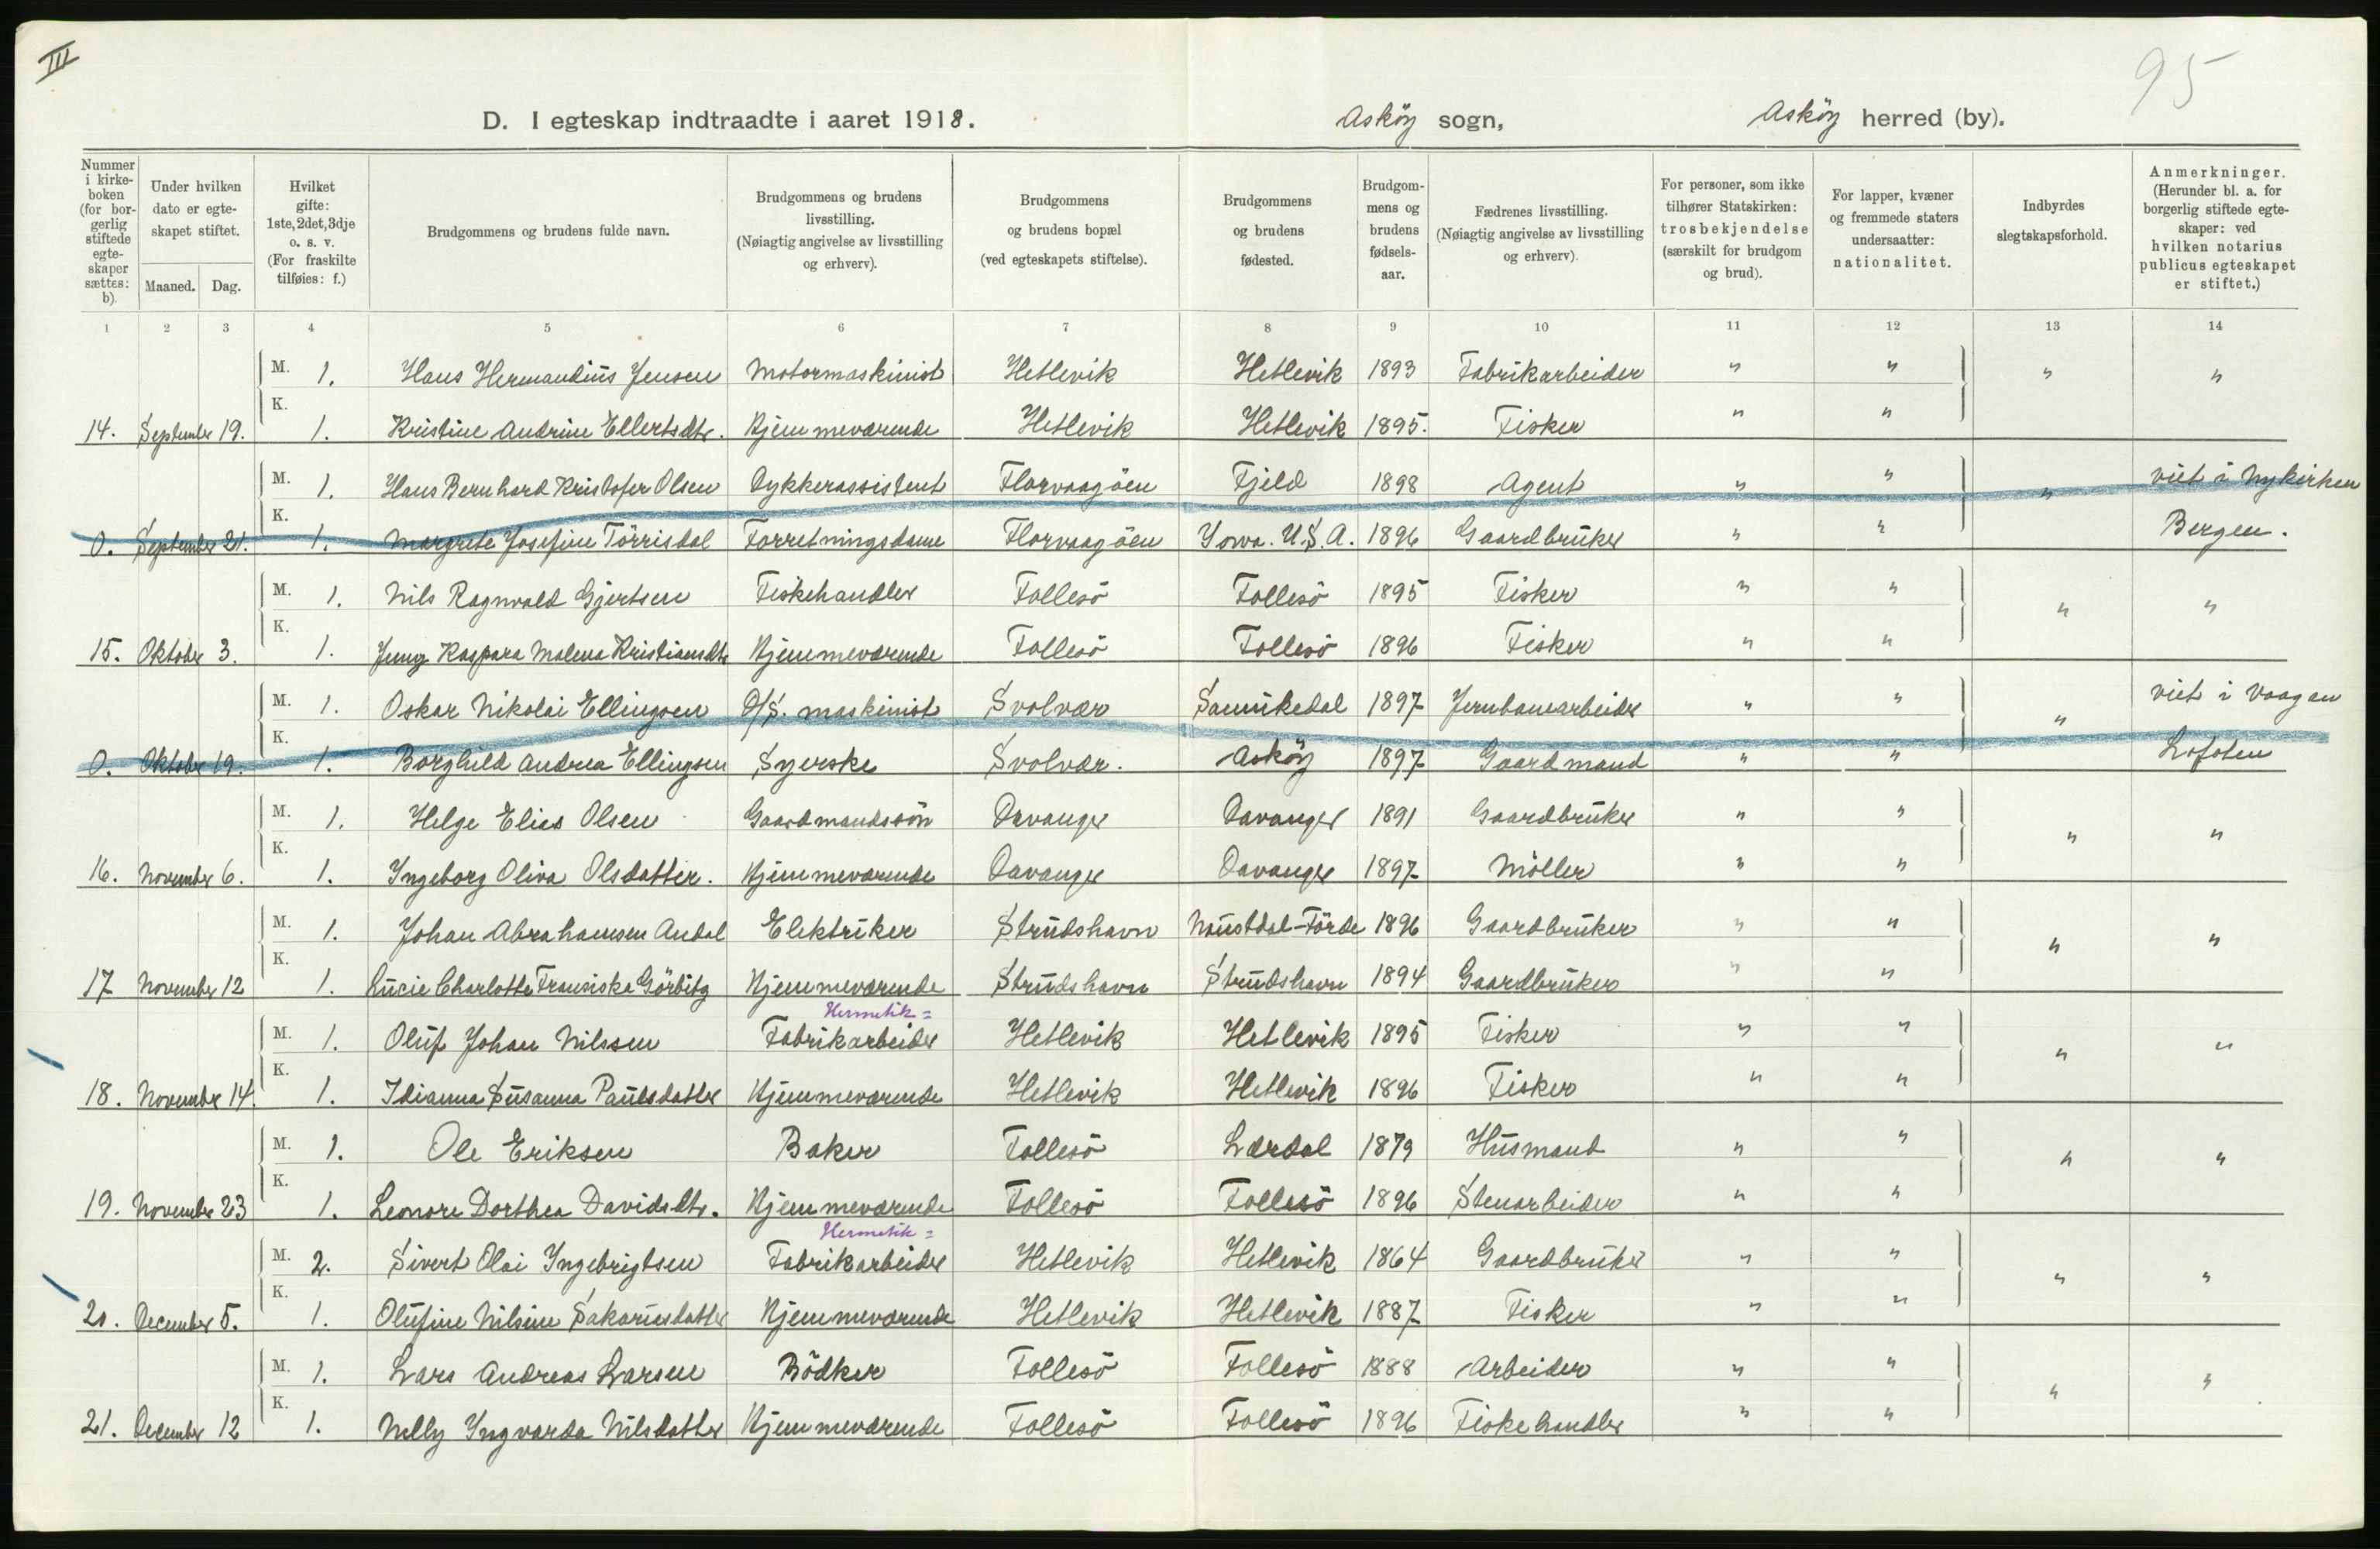 III
95
D. I egteskap indtraadte i aaret 1918. Asköy sogn, Asköy herred (by).
Nummer i kirke-boken (for bor-gerlig stiftede egte-skaper sættes: b).
Under hvilken dato er egte-skapet stiftet.
Maaned. Dag.
Hvilket gifte: 1ste, 2det, 3dje o. s. v. (For fraskilte tilføies: f.)
Brudgommens og brudens fulde navn.
Brudgommens og brudens livsstilling. (Nøiagtig angivelse av livsstilling og erhverv).
Brudgommens og brudens bopæl (ved egteskapets stiftelse).
Brudgommens og brudens fødested.
Brudgom-mens og brudens fødsels-aar.
Fædrenes livsstilling. (Nøiagtig angivelse av livsstilling og erhverv).
For personer, som ikke tilhører Statskirken: trosbekjendelse (særskilt for brudgom og brud).
For lapper, kvæner og fremmede staters undersaatter: nationalitet.
Indbyrdes slegtskapsforhold.
Anmerkninger. (Herunder bl. a. for borgerlig stiftede egte-skaper: ved hvilken notarius publicus egteskapet er stiftet.)
1 2 3 4 5 6 7 8 9 10 11 12 13 14
M. 1. Hans Hermandius Jensen Motormaskinist Hetlevik Hetlevik 1893 Fabrikarbeider " " " "
14. September 19. K. 1. Kristine Andrine Ellertsdtr. Hjemmeværende Hetlevik Hetlevik 1895. Fisker " "
M. 1. Hans Bernhard Kristofer Olsen Dykkerassistent Florvaagöen Fjeld 1898 Agent " " " viet i Nykirken
0. September 21. K. 1. Margrete Josefine Törrisdal Forretningsdame Florvaagöen Yowa. U.S.A. 1896 Gaardbruker " " Bergen.
M. 1. Nils Ragnvald Gjertsen Fiskehandler Follesö Follesö 1895 Fisker " " " "
15. Oktober 3. K. 1. Jenny Kaspara Malena Kristiansdtr Hjemmeværende Follesö Follesö 1896 Fisker " "
M. 1. Oskar Nikolai Ellingsen D/S. maskinist Svolvær Samnikedal 1897 Jernbanearbeider " " " viet i Vaagan
0. Oktober 19. K. 1. Borghild Andrea Ellingsen Syerske Svolvær. Asköy 1897 Gaardmand " " Lofoten
M. 1. Helge Elias Olsen Gaardmandssön Davanger Davanger 1891 Gaardbruker " " " "
16. November 6. K. 1. Ingeborg Oliva Olsdatter. Hjemmeværende Davanger Davanger 1897 Möller " "
M. 1. Johan Abrahamsen Andal Elektriker Strudshavn Naustdal-Förde 1896 Gaardbruker " " " "
17 November 12 K. 1. Lucie Charlotte Fransiska Görbitz Hjemmeværende Strudshavn Strudshavn 1894 Gaardbruker " "
Hermetik=
M. 1. Oluf Johan Nilssen Fabrikarbeider Hetlevik Hetlevik 1895 Fisker " " " "
18. November 14. K. 1. Idianna Susanna Paulsdatter Hjemmeværende Hetlevik Hetlevik 1896 Fisker " "
M. 1. Ole Eriksen Baker Follesö Lærdal 1879 Husmand " " " "
19. November 23 K. 1. Leonore Dorthea Davidsdtr. Hjemmeværende Follesö Follesö 1896 Stenarbeider " "
Hermetik=
M. 2. Sivert Olai Ingebrigtsen Fabrikarbeider Hetlevik Hetlevik 1864 Gaardbruker " " " "
20. December 5. K. 1. Olufine Nilsine Sakariasdatter Hjemmeværende Hetlevik Hetlevik 1887 Fisker " "
M. 1. Lars Andreas Larsen Bödker Follesö Follesö 1888 Arbeider " " " "
21. December 12 K. 1. Nelly Ingvarda Nilsdatter Hjemmeværende Follesö Follesö 1896 Fiskehandler " "